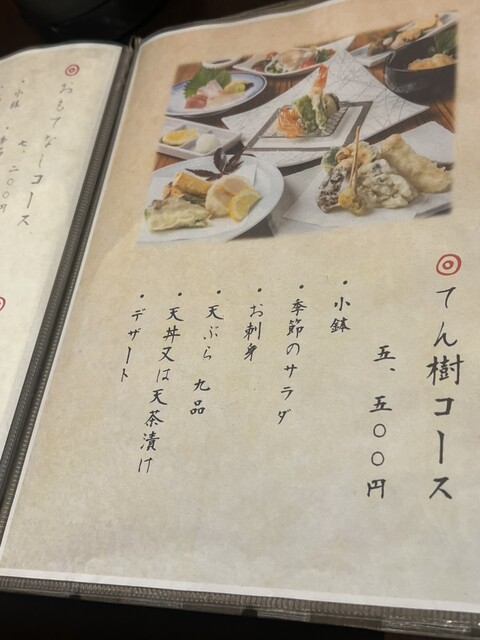 てん樹コース
五、五〇〇円
・小鉢
・季節のサラダ
・お刺身
・天ぷら 九品
・天丼又は天茶漬け
・デザート
おもてなしコース
七、二〇〇円
・小鉢